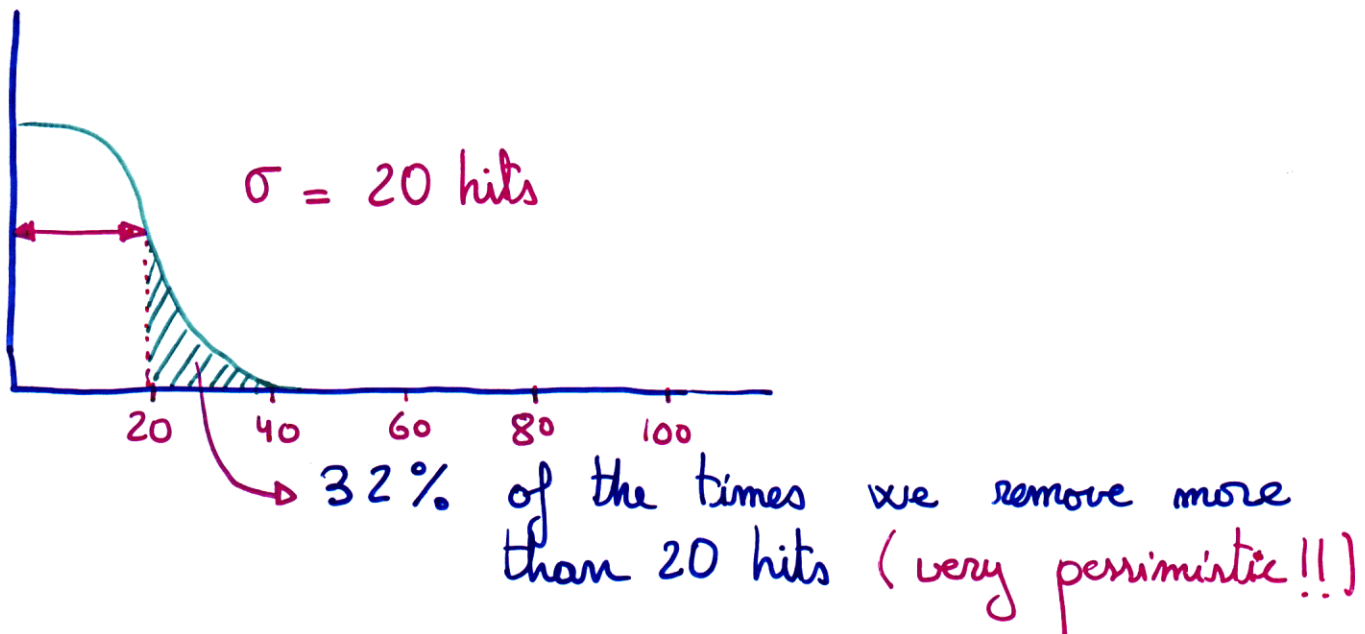 σ = 20 hits
20 40 60 80 100
32% of the times we remove more
than 20 hits (very pessimistic!!)